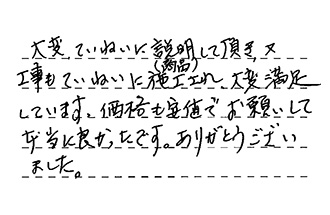 大変、ていねいに説明して頂き、又
(商品)
工事もていねいに施工され、大変満足
しています。価格も安値でお願いして
本当に良かったです。ありがとうござい
ました。